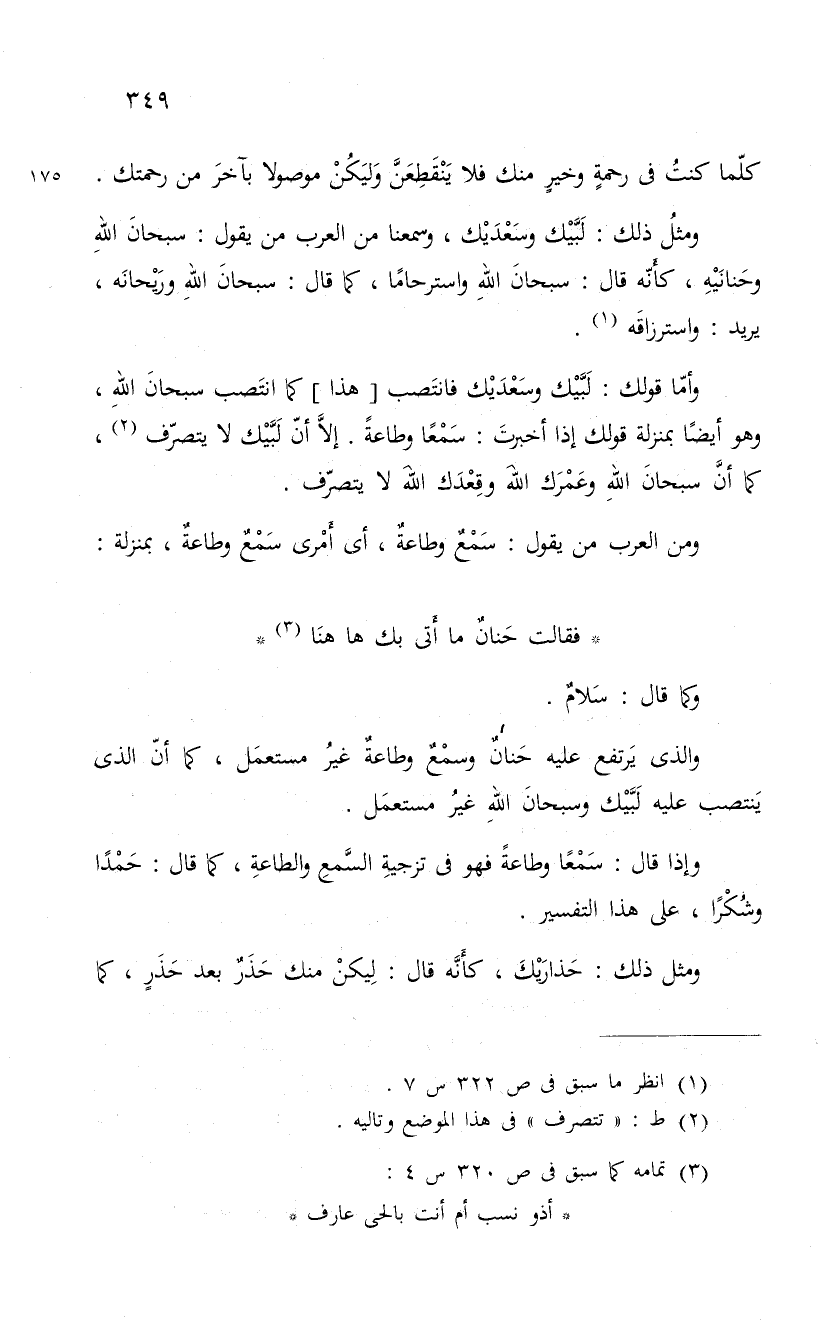 ٣٤٩
كلّما كنتُ فى رحمةٍ وخيرٍ منك فلا يَنْقَطِعَنَّ وَليَكُنْ موصولا بآخرَ من رحمتك . ١٧٥
ومثلُ ذلك : لَبَّيْك وسَعْدَيْك ، وسمعنا من العرب من يقول : سبحانَ اللهِ
وحَنانَيْهِ ، كأَنّه قال : سبحانَ اللهِ واسترحامًا ، كما قال : سبحانَ اللهِ ورَيْحانَه ،
يريد : واسترزاقَه (١) .
وأمّا قولك : لَبَّيْك وسَعْدَيْك فانتَصب [ هذا ] كما انتَصب سبحانَ اللهِ ،
وهو أيضًا بمنزلة قولك إذا أخبرتَ : سَمْعًا وطاعةً . إلاَّ أنّ لَبَّيْك لا يتصرّف (٢) ،
كما أنَّ سبحانَ اللهِ وعَمْرَك اللهَ وقِعْدَك اللهَ لا يتصرّف .
ومن العرب من يقول : سَمْعٌ وطاعةٌ ، أى أَمْرى سَمْعٌ وطاعةٌ ، بمنزلة :
* فقالت حَنانٌ ما أَتى بك ها هنَا (٣) *
وكما قال : سَلامٌ .
والذى يَرتفع عليه حَنانٌ وسمْعٌ وطاعةٌ غيرُ مستعمَل ، كما أنّ الذى
يَنتصب عليه لَبَّيْك وسبحانَ اللهِ غيرُ مستعمَل .
وإذا قال : سَمْعًا وطاعةً فهو فى تزجيةِ السَّمعِ والطاعةِ ، كما قال : حَمْدًا
وشُكْرًا ، على هذا التفسير .
ومثل ذلك : حَذارَيْكَ ، كأَنَّه قال : لِيكنْ منك حَذَرٌ بعد حَذَرٍ ، كما
(١) انظر ما سبق فى ص ٣٢٢ س ٧ .
(٢) ط : « تتصرف » فى هذا الموضع وتاليه .
(٣) تمامه كما سبق فى ص ٣٢٠ س ٤ :
* أذو نسب أم أنت بالحى عارف *